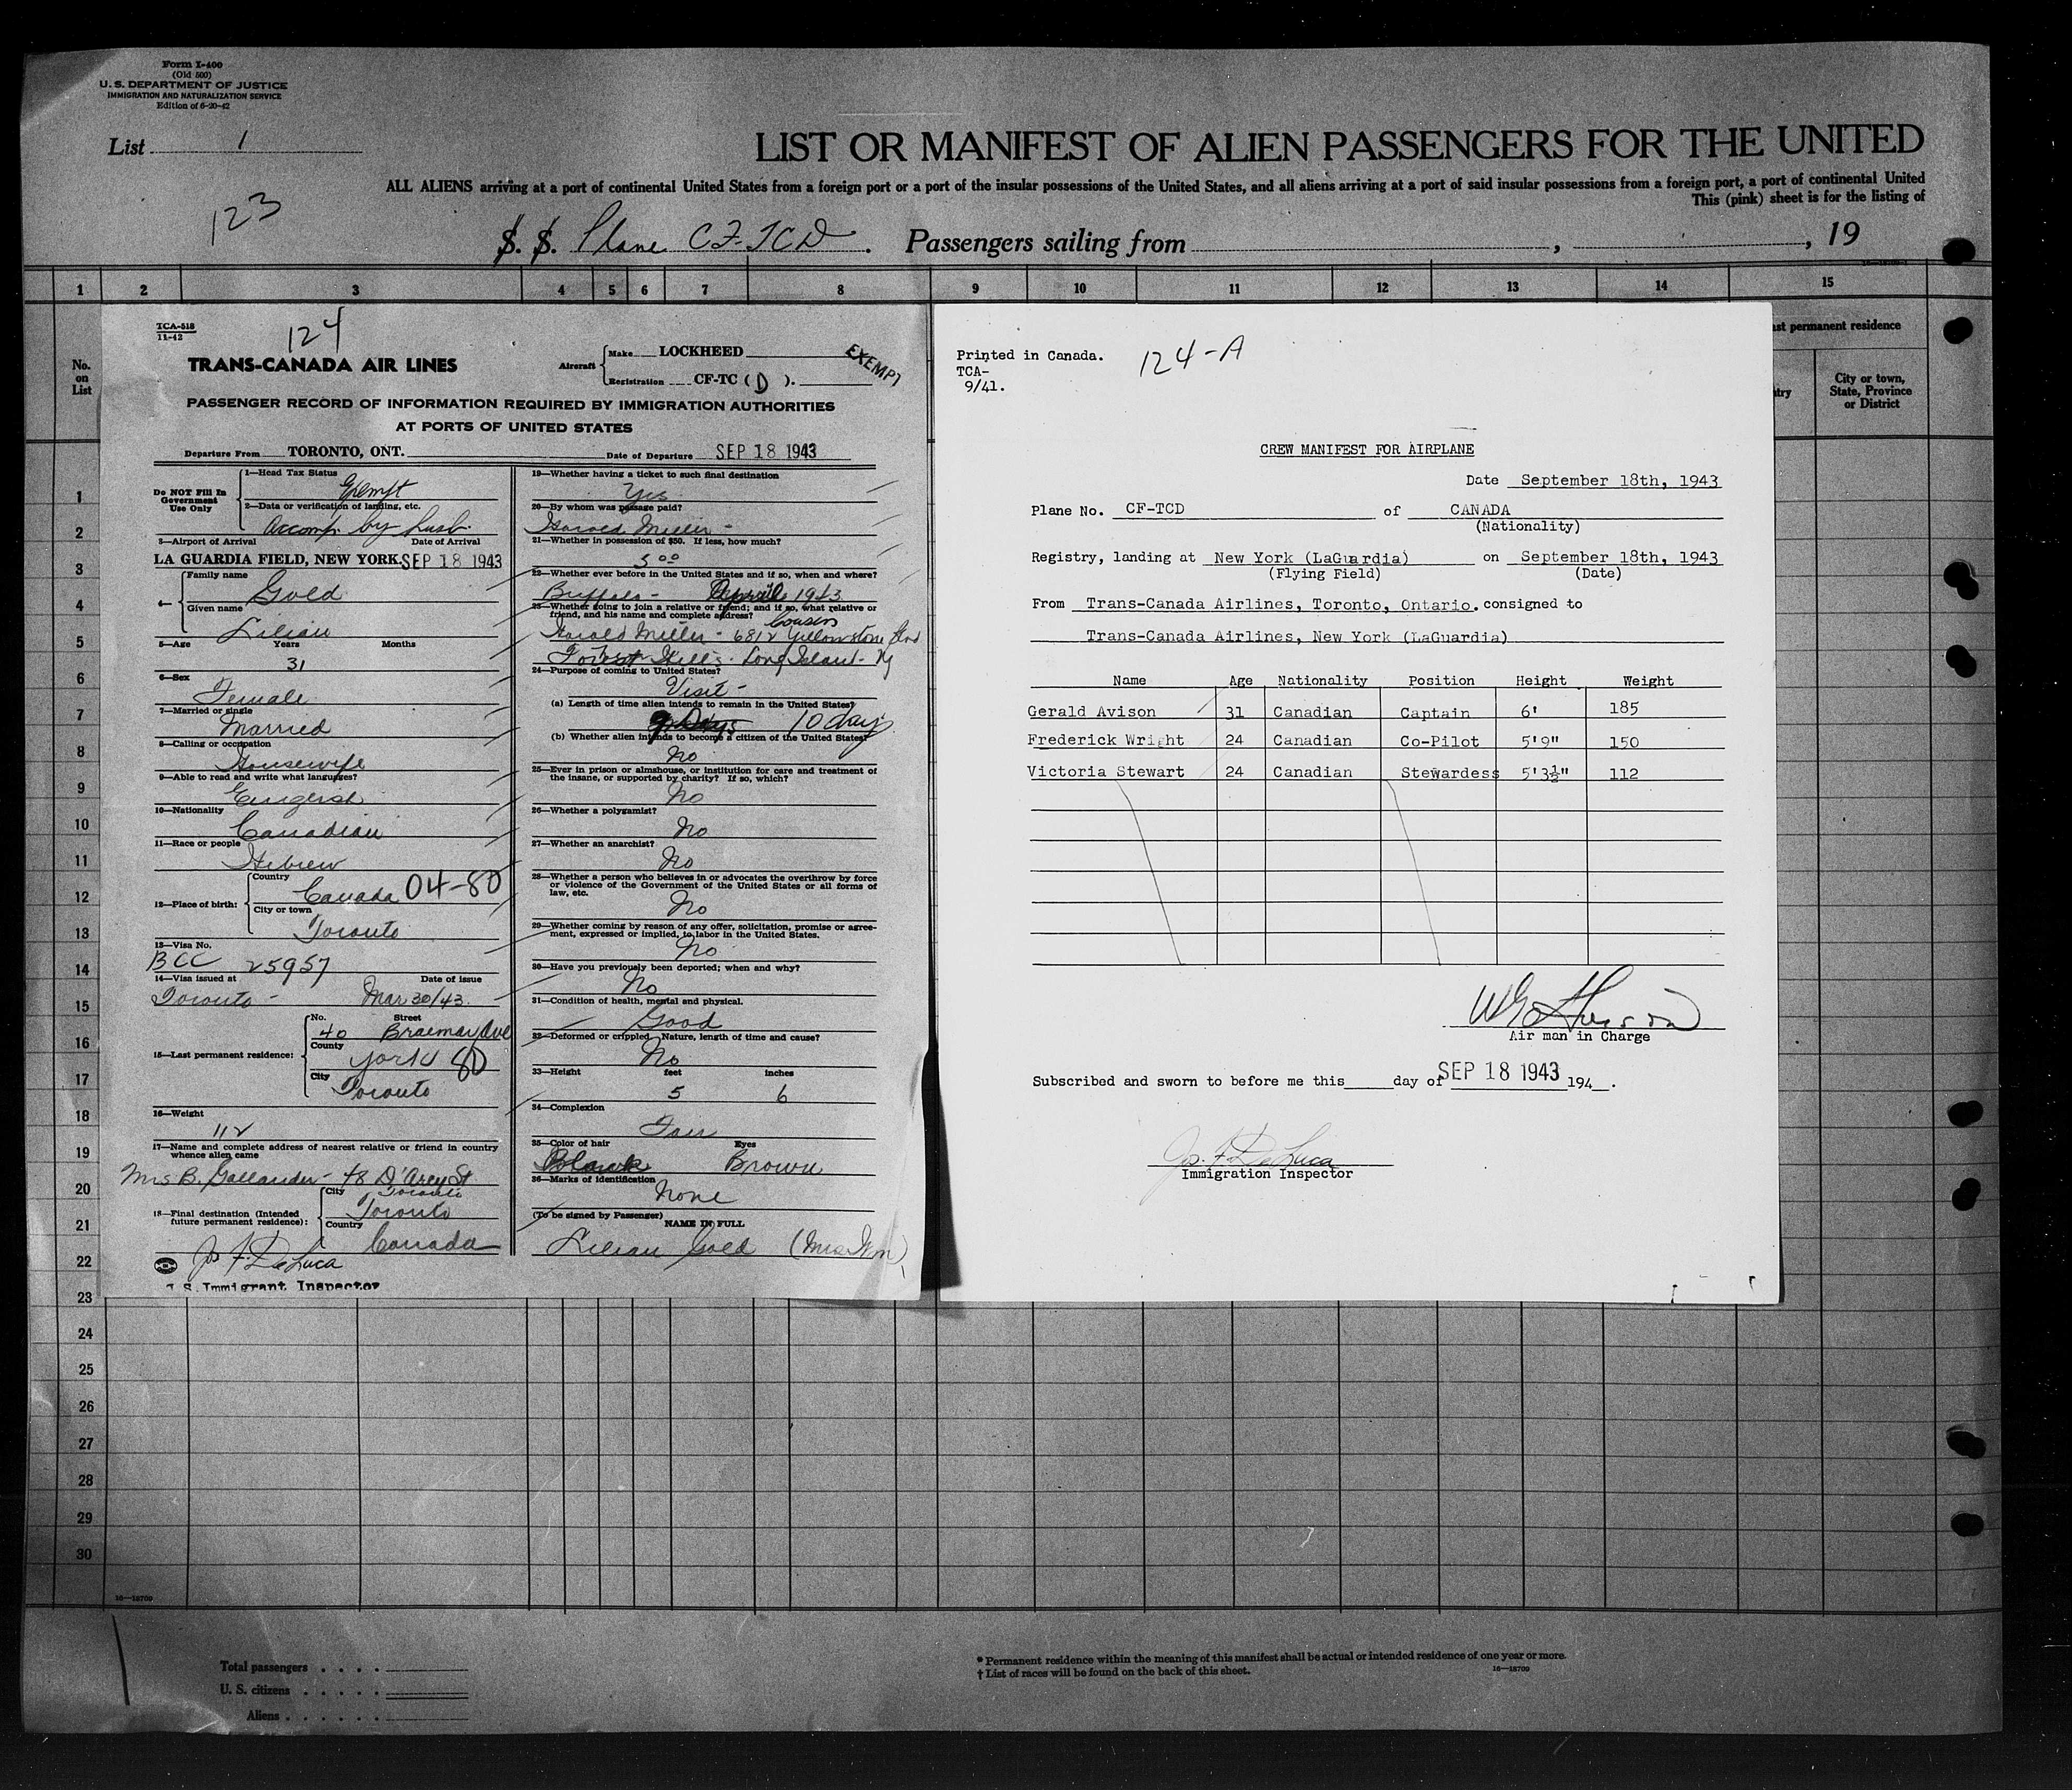 Form I-400
(Old 500)
U. S. DEPARTMENT OF JUSTICE
IMMIGRATION AND NATURALIZATION SERVICE
Edition of 6-20-42
List 1
123
LIST OR MANIFEST OF ALIEN PASSENGERS FOR THE UNITED
ALL ALIENS arriving at a port of continental United States from a foreign port or a port of the insular possessions of the United States, and all aliens arriving at a port of said insular possessions from a foreign port, a port of continental United
This (pink) sheet is for the listing of
S. S. Plane CF-TCD. Passengers sailing from , , 19
1 2 3 4 5 6 7 8 9 10 11 12 13 14 15
No. on List
ast permanent residence
try
City or town, State, Province or District
TCA-518
11-42
124
TRANS-CANADA AIR LINES
Aircraft Make LOCKHEED
Registration CF-TC (D).
EXEMPT
PASSENGER RECORD OF INFORMATION REQUIRED BY IMMIGRATION AUTHORITIES
AT PORTS OF UNITED STATES
Departure From TORONTO, ONT. Date of Departure SEP 18 1943
Do NOT Fill In Government Use Only
1—Head Tax Status
Exempt
2—Data or verification of landing, etc.
Accomp. by husb.
3—Airport of Arrival Date of Arrival
LA GUARDIA FIELD, NEW YORK. SEP 18 1943
4—
Family name
Gold
Given name
Lilian
5—Age Years Months
31
6—Sex
Female
7—Married or single
Married
8—Calling or occupation
Housewife
9—Able to read and write what languages?
English
10—Nationality
Canadian
11—Race or people
Hebrew
12—Place of birth:
Country
Canada 04-80
City or town
Toronto
13—Visa No.
BCC 25957
14—Visa issued at Date of issue
Toronto - Mar 30/43.
15—Last permanent residence:
No. Street
40 Braemar Ave
County
York 80
City
Toronto
16—Weight
112
17—Name and complete address of nearest relative or friend in country
whence alien came
Mrs B. Gallander - 48 D'Arcy St
Toronto
18—Final destination (Intended future permanent residence):
City
Toronto
Country
Canada
Jos F. DeLuca
U.S. Immigrant Inspector
19—Whether having a ticket to such final destination
Yes
20—By whom was passage paid?
Harold Miller -
21—Whether in possession of $50. If less, how much?
5 00
22—Whether ever before in the United States and if so, when and where?
Buffalo - April 1943
23—Whether going to join a relative or friend; and if so, what relative or
friend, and his name and complete address?
Cousin
Harold Miller - 6812 Yellowstone Blvd
Forest Hills - Long Island - NY
24—Purpose of coming to United States?
Visit -
(a) Length of time alien intends to remain in the United States?
9 Days 10 days
(b) Whether alien intends to become a citizen of the United States?
No
25—Ever in prison or almshouse, or institution for care and treatment of
the insane, or supported by charity? If so, which?
No
26—Whether a polygamist?
No
27—Whether an anarchist?
No
28—Whether a person who believes in or advocates the overthrow by force
or violence of the Government of the United States or all forms of
law, etc.
No
29—Whether coming by reason of any offer, solicitation, promise or agree-
ment, expressed or implied, to labor in the United States.
No
30—Have you previously been deported; when and why?
No
31—Condition of health, mental and physical.
Good
32—Deformed or crippled. Nature, length of time and cause?
No
33—Height feet inches
5 6
34—Complexion
Fair
35—Color of hair Eyes
Black Brown
36—Marks of identification
None
(To be signed by Passenger)
NAME IN FULL
Lilian Gold (Mrs Wm)
Printed in Canada.
TCA-
9/41.
124-A
CREW MANIFEST FOR AIRPLANE
Date September 18th, 1943
Plane No. CF-TCD of CANADA
(Nationality)
Registry, landing at New York (LaGuardia) on September 18th, 1943
(Flying Field) (Date)
From Trans-Canada Airlines, Toronto, Ontario. consigned to
Trans-Canada Airlines, New York (LaGuardia)
Name Age Nationality Position Height Weight
Gerald Avison 31 Canadian Captain 6' 185
Frederick Wright 24 Canadian Co-Pilot 5'9" 150
Victoria Stewart 24 Canadian Stewardess 5'3½" 112
Air man in Charge
Subscribed and sworn to before me this day of SEP 18 1943 194 .
Jos. F. DeLuca
Immigration Inspector
1
2
3
4
5
6
7
8
9
10
11
12
13
14
15
16
17
18
19
20
21
22
23
24
25
26
27
28
29
30
16—18700
Total passengers . . . .
U. S. citizens . . . . . .
Aliens . . . . . .
* Permanent residence within the meaning of this manifest shall be actual or intended residence of one year or more.
† List of races will be found on the back of this sheet.
16—18700